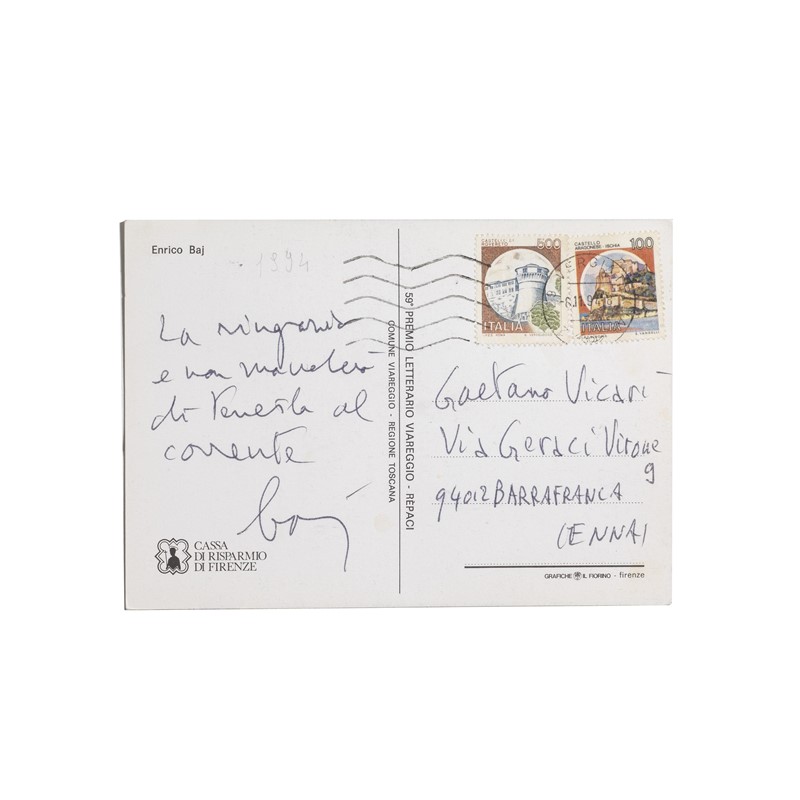 Enrico Baj
1994
La ringrazio
e non mancherò
di tenerla al
corrente
Baj
CASSA
DI RISPARMIO
DI FIRENZE
59° PREMIO LETTERARIO VIAREGGIO - RÈPACI
COMUNE VIAREGGIO - REGIONE TOSCANA
CASTELLO DI
ROVERETO
500
ITALIA
CASTELLO
ARAGONESE - ISCHIA
100
ITALIA
Gaetano Vicari
Via Geraci Virone
9
94012 BARRAFRANCA
(ENNA)
GRAFICHE IL FIORINO - firenze